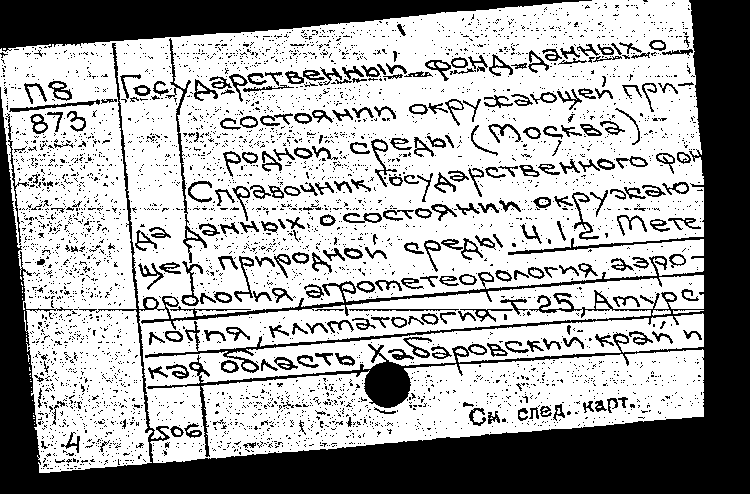 П8
873
Государственный фонд данных о
состоянии окружающей при-
родной среды (Москва)
Справочник Государственного фон
да данных о состоянии окружаю-
щей природной среды. Ч.1,2. Мете
орология, агрометеорология, аэро-
логия, климатология. Т. 25, Амурс-
кая область, Хабаровский край и
4
2506
См. след. карт.